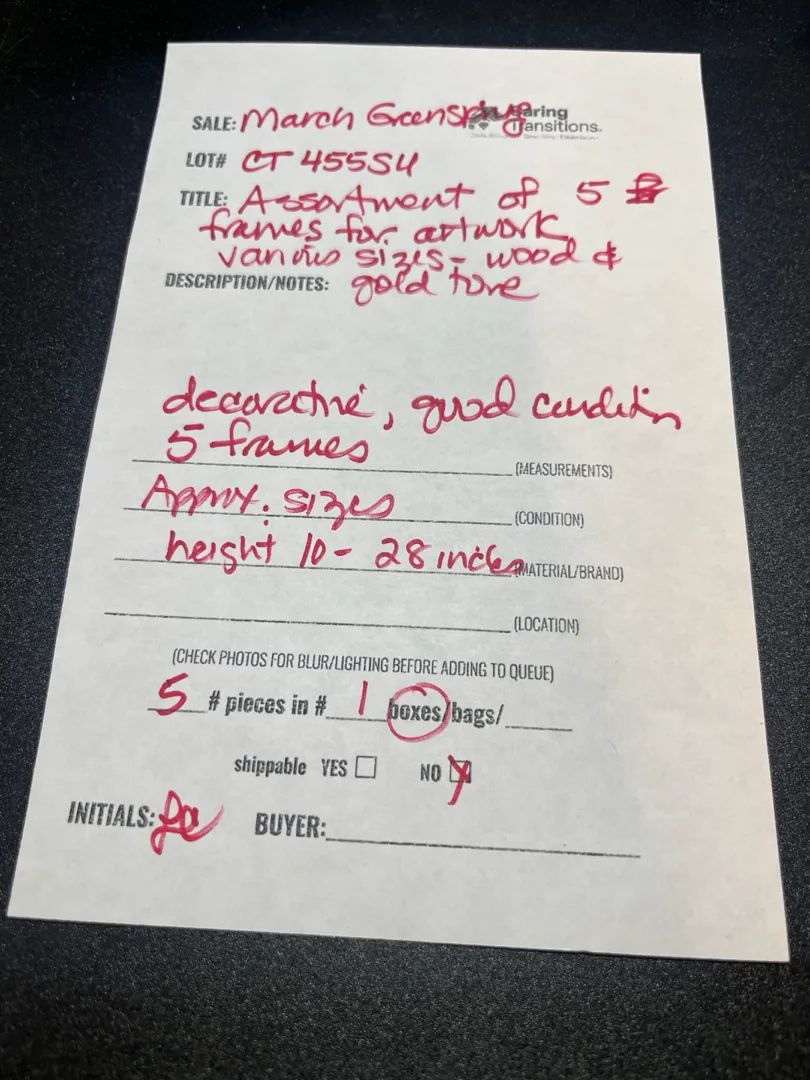 SALE: March Greenspring Caring
Transitions.
LOT# CT 455SU
TITLE: Assortment of 5
frames for artwork
various sizes - wood &
DESCRIPTION/NOTES: gold tone
decorative, good condition
5 frames (MEASUREMENTS)
Approx. sizes (CONDITION)
height 10 - 28 inches (MATERIAL/BRAND)
(LOCATION)
(CHECK PHOTOS FOR BLUR/LIGHTING BEFORE ADDING TO QUEUE)
5 # pieces in # 1 boxes/bags/
shippable YES NO
INITIALS: BUYER: